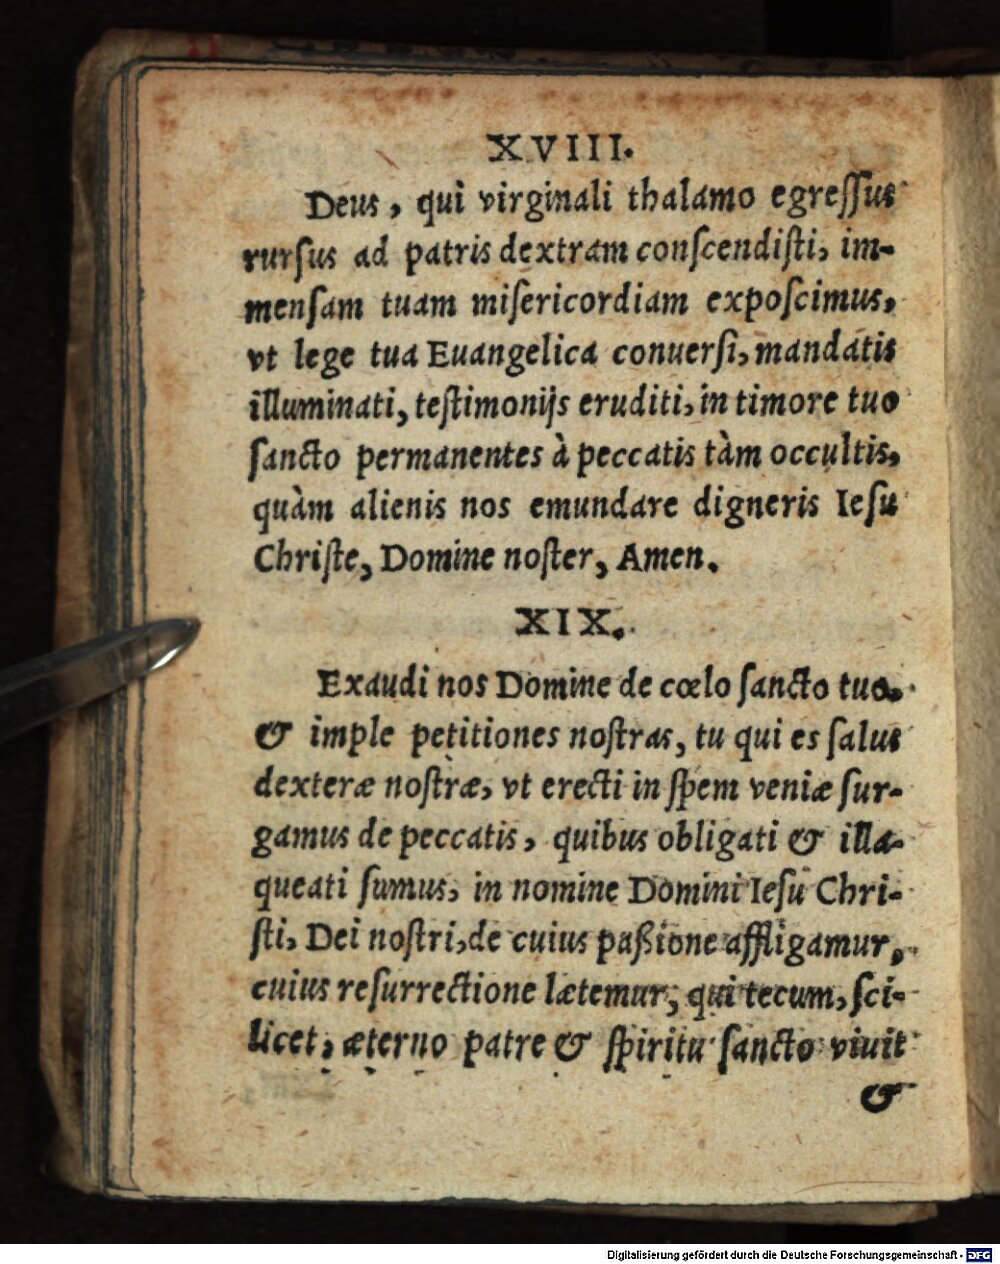 XVIII.
Deus, qui virginali thalamo egreſſus
rurſus ad patris dextram conſcendiſti, im-
menſam tuam miſericordiam expoſcimus,
vt lege tua Euangelica conuerſi, mandatis
illuminati, teſtimonijs eruditi, in timore tuo
ſancto permanentes à peccatis tàm occultis,
quàm alienis nos emundare digneris Ieſu
Chriſte, Domine noſter, Amen.
XIX.
Exaudi nos Domine de cœlo ſancto tuo.
& imple petitiones noſtras, tu qui es ſalus
dexteræ noſtræ, vt erecti in ſpem veniæ ſur-
gamus de peccatis, quibus obligati & illa-
queati ſumus, in nomine Domini Ieſu Chri-
ſti, Dei noſtri, de cuius paßione affligamur,
cuius reſurrectione lætemur, qui tecum, ſci-
licet, æterno patre & ſpiritu ſancto viuit
&
Digitalisierung gefördert durch die Deutsche Forschungsgemeinschaft - DFG